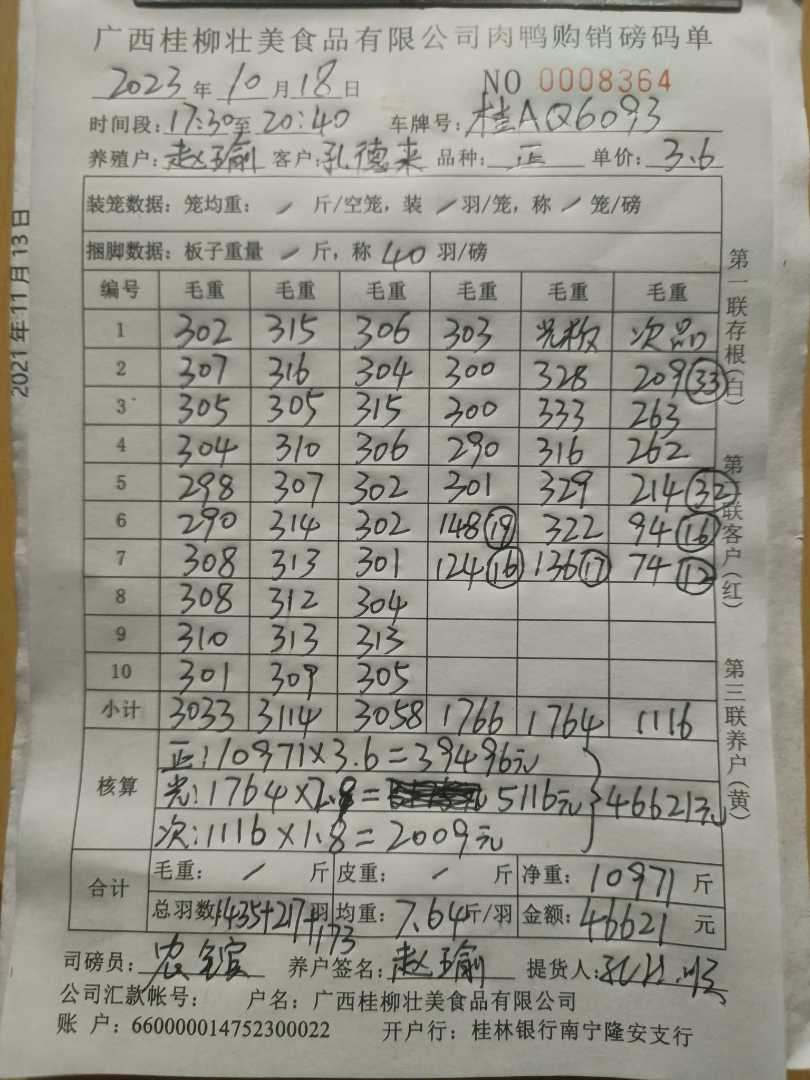 广西桂柳壮美食品有限公司肉鸭购销磅码单
2023年10月18日 NO 0008364
时间段:17:30至20:40 车牌号:桂AQ6093
养殖户:赵瑜 客户:孔德来 品种:正 单价:3.6
装笼数据:笼均重: / 斤/空笼,装 / 羽/笼,称 / 笼/磅
捆脚数据:板子重量 / 斤,称 40 羽/磅
编号 毛重 毛重 毛重 毛重 毛重 毛重
1 302 315 306 303 光板 次品
2 307 316 304 300 328 209 33
3 305 305 315 300 333 263
4 304 310 306 290 316 262
5 298 307 302 301 329 214 32
6 290 314 302 148 19 322 94 16
7 308 313 301 124 16 136 17 74 12
8 308 312 304
9 310 313 313
10 301 309 305
小计 3033 3114 3058 1766 1764 1116
核算
正:10971×3.6=39496元
光:1764×2.9= 5116元 46621元
次:1116×1.8=2009元
合计
毛重: / 斤 皮重: / 斤 净重:10971斤
总羽数1435+217+173羽 均重:7.64斤/羽 金额:46621元
司磅员: 养户签名:赵瑜 提货人:
公司汇款帐号: 户名:广西桂柳壮美食品有限公司
账 户:660000014752300022 开户行:桂林银行南宁隆安支行
第一联存根(白)
第二联客户(红)
第三联养户(黄)
2021年11月13日